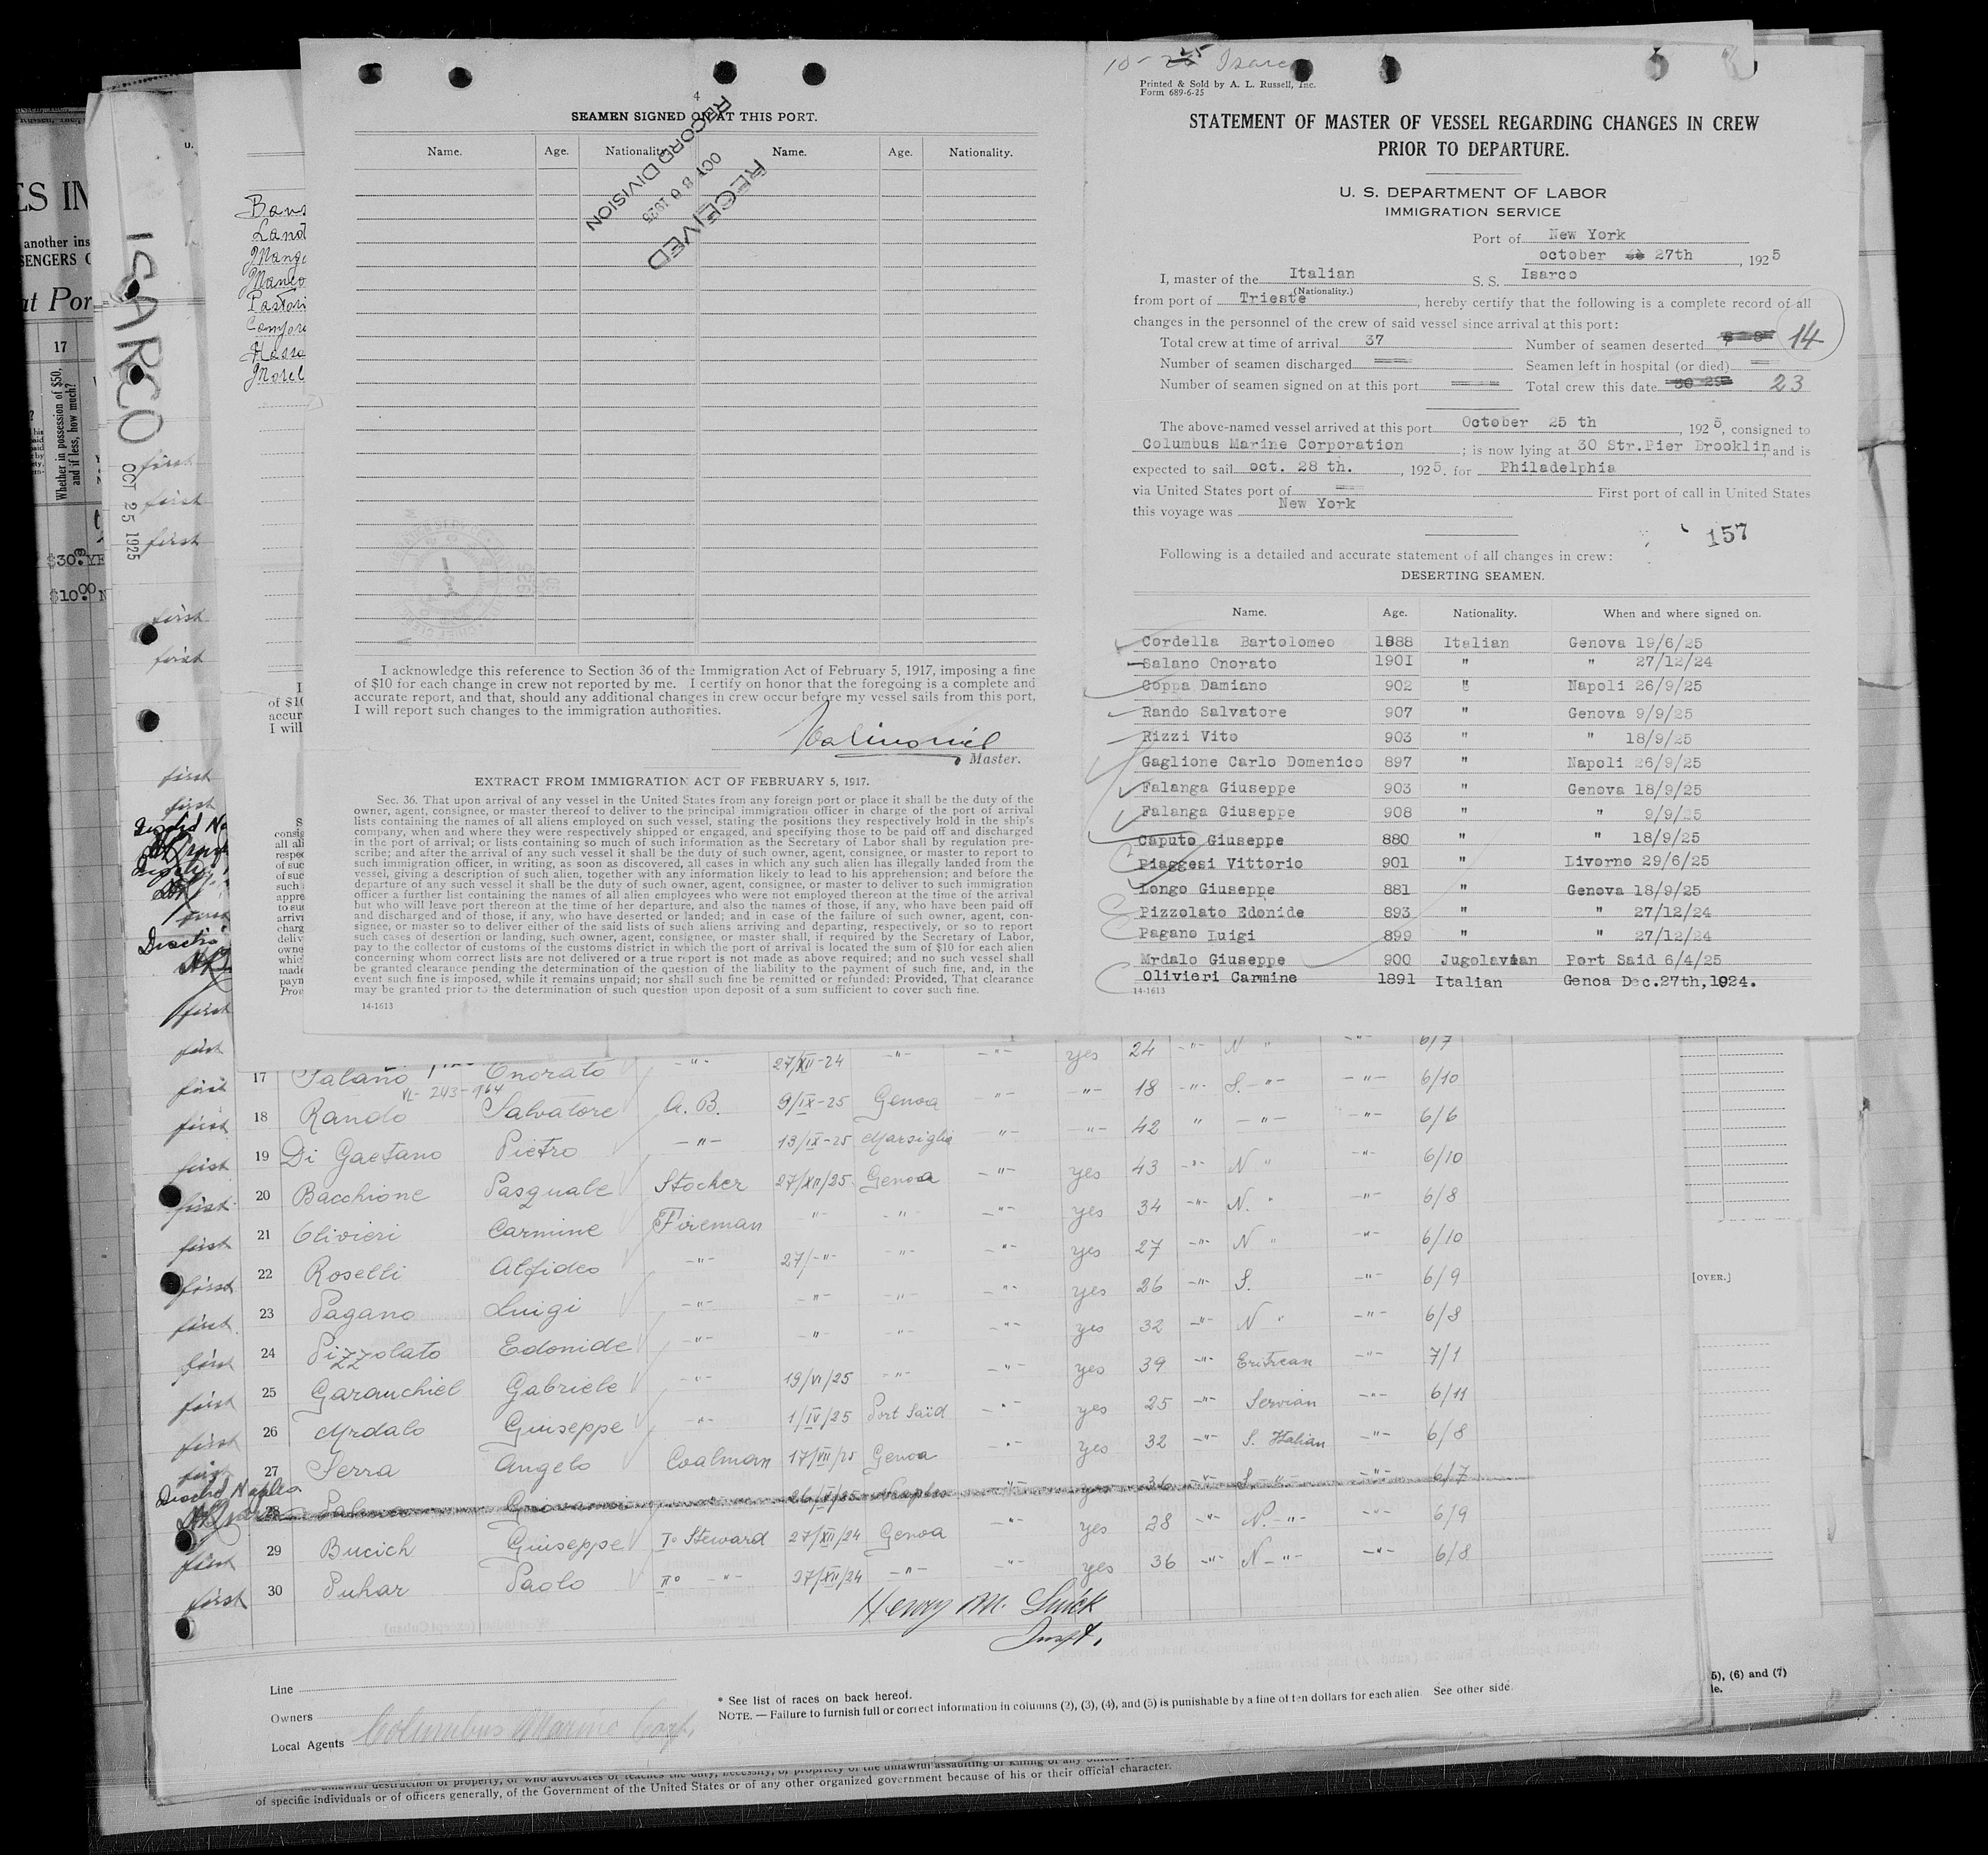 4
SEAMEN SIGNED ON AT THIS PORT.
Name. Age. Nationality. Name. Age. Nationality.
RECEIVED
OCT 30 1925
RECORD DIVISION
I acknowledge this reference to Section 36 of the Immigration Act of February 5, 1917, imposing a fine
of $10 for each change in crew not reported by me. I certify on honor that the foregoing is a complete and
accurate report, and that, should any additional changes in crew occur before my vessel sails from this port,
I will report such changes to the immigration authorities.
Master.
EXTRACT FROM IMMIGRATION ACT OF FEBRUARY 5, 1917.
Sec. 36. That upon arrival of any vessel in the United States from any foreign port or place it shall be the duty of the
owner, agent, consignee, or master thereof to deliver to the principal immigration officer in charge of the port of arrival
lists containing the names of all aliens employed on such vessel, stating the positions they respectively hold in the ship's
company, when and where they were respectively shipped or engaged, and specifying those to be paid off and discharged
in the port of arrival; or lists containing so much of such information as the Secretary of Labor shall by regulation pre-
scribe; and after the arrival of any such vessel it shall be the duty of such owner, agent, consignee, or master to report to
such immigration officer, in writing, as soon as discovered, all cases in which any such alien has illegally landed from the
vessel, giving a description of such alien, together with any information likely to lead to his apprehension; and before the
departure of any such vessel it shall be the duty of such owner, agent, consignee, or master to deliver to such immigration
officer a further list containing the names of all alien employees who were not employed thereon at the time of the arrival
but who will leave port thereon at the time of her departure, and also the names of those, if any, who have been paid off
and discharged and of those, if any, who have deserted or landed; and in case of the failure of such owner, agent, con-
signee, or master so to deliver either of the said lists of such aliens arriving and departing, respectively, or so to report
such cases of desertion or landing, such owner, agent, consignee, or master shall, if required by the Secretary of Labor,
pay to the collector of customs of the customs district in which the port of arrival is located the sum of $10 for each alien
concerning whom correct lists are not delivered or a true report is not made as above required; and no such vessel shall
be granted clearance pending the determination of the question of the liability to the payment of such fine, and, in the
event such fine is imposed, while it remains unpaid; nor shall such fine be remitted or refunded: Provided, That clearance
may be granted prior to the determination of such question upon deposit of a sum sufficient to cover such fine.
14-1613
Isarco
Printed & Sold by A. L. Russell, Inc.
Form 689-6-25
STATEMENT OF MASTER OF VESSEL REGARDING CHANGES IN CREW
PRIOR TO DEPARTURE.
U. S. DEPARTMENT OF LABOR
IMMIGRATION SERVICE
Port of New York
october 27th, 1925
I, master of the Italian S. S. Isarco
(Nationality.)
from port of Trieste, hereby certify that the following is a complete record of all
changes in the personnel of the crew of said vessel since arrival at this port:
Total crew at time of arrival 37 Number of seamen deserted 14
Number of seamen discharged Seamen left in hospital (or died)
Number of seamen signed on at this port Total crew this date 23
The above-named vessel arrived at this port October 25 th, 1925, consigned to
Columbus Marine Corporation; is now lying at 30 Str.Pier Brooklin and is
expected to sail oct. 28 th., 1925. for Philadelphia
via United States port of First port of call in United States
this voyage was New York
157
Following is a detailed and accurate statement of all changes in crew:
DESERTING SEAMEN.
Name. Age. Nationality. When and where signed on.
Cordella Bartolomeo 1888 Italian Genova 19/6/25
Salano Onorato 1901 " " 27/12/24
Coppa Damiano 902 " Napoli 26/9/25
Rando Salvatore 907 " Genova 9/9/25
Rizzi Vito 903 " " 18/9/25
Gaglione Carlo Domenico 897 " Napoli 26/9/25
Falanga Giuseppe 903 " Genova 18/9/25
Falanga Giuseppe 908 " " 9/9/25
Caputo Giuseppe 880 " " 18/9/25
Piaggesi Vittorio 901 " Livorno 29/6/25
Longo Giuseppe 881 " Genova 18/9/25
Pizzolato Edonide 893 " " 27/12/24
Pagano Luigi 899 " " 27/12/24
Mrdalo Giuseppe 900 Jugolavian Port Said 6/4/25
Olivieri Carmine 1891 Italian Genoa Dec.27th,1924.
14-1613
ISARCO OCT 25 1925
17 Salano Onorato -"- 27/XII-24 -"- -"- yes 24 -"- N " -"- 6/7
18 Rando Salvatore A. B. 9/IX-25 Genoa -"- -"- 18 -"- S. -"- -"- 6/10
19 Di Gaetano Pietro -"- 13/IX-25 Marsiglia -"- -"- 42 " -"- -"- 6/6
20 Bacchione Pasquale Stocker 27/XII/25 Genoa -"- yes 43 -"- N " -"- 6/10
21 Olivieri Carmine Fireman -"- -"- -"- yes 34 -"- N. " -"- 6/8
22 Roselli Alfideo -"- 27/-"- -"- -"- yes 27 -"- N " -"- 6/10
23 Pagano Luigi -"- -"- -"- -"- yes 26 -"- S. -"- 6/9
24 Pizzolato Edonide -"- -"- -"- -"- yes 32 -"- N " -"- 6/8
25 Garauchiel Gabriele -"- 19/VI/25 -"- -"- yes 39 -"- Eritrean -"- 7/1
26 Mrdalo Giuseppe -"- 1/IV/25 Port Saïd -"- yes 25 -"- Servian -"- 6/11
27 Serra Angelo Coalman 17/VII/25 Genoa -"- yes 32 -"- S. Italian -"- 6/8
28 Giovanni 26/IX/25 Naples -"- yes 36 -"- S. -"- -"- 6/7
29 Bucich Giuseppe I° Steward 27/XII/24 Genoa -"- yes 28 -"- N. -"- -"- 6/9
30 Puhar Paolo II° -"- 27/XII/24 -"- -"- yes 36 -"- N -"- -"- 6/8
[OVER.]
Line
Owners
Local Agents Columbus Marine Corp.
* See list of races on back hereof.
NOTE. — Failure to furnish full or correct information in columns (2), (3), (4), and (5) is punishable by a fine of ten dollars for each alien. See other side.
5), (6) and (7)
of specific individuals or of officers generally, of the Government of the United States or of any other organized government because of his or their official character.